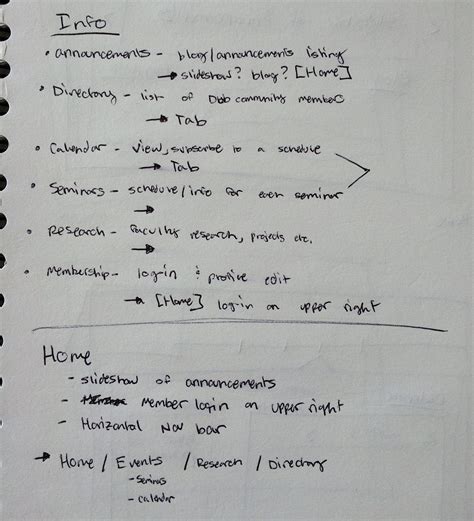 Info
• announcements - blog/announcements listing
→ slideshow? blog? [Home]
• Directory - list of Dbb community members
→ Tab
• Calendar - view, subscribe to a schedule
→ Tab
• Seminars - schedule/info for even seminar
→
• Research - faculty research, projects etc.
→
• Membership - login & profile edit
→ [Home] login on upper right
Home
- slideshow of announcements
- Member login on upper right
- Horizontal Nav bar
→ Home / Events / Research / Directory
- Seminars
- calendar